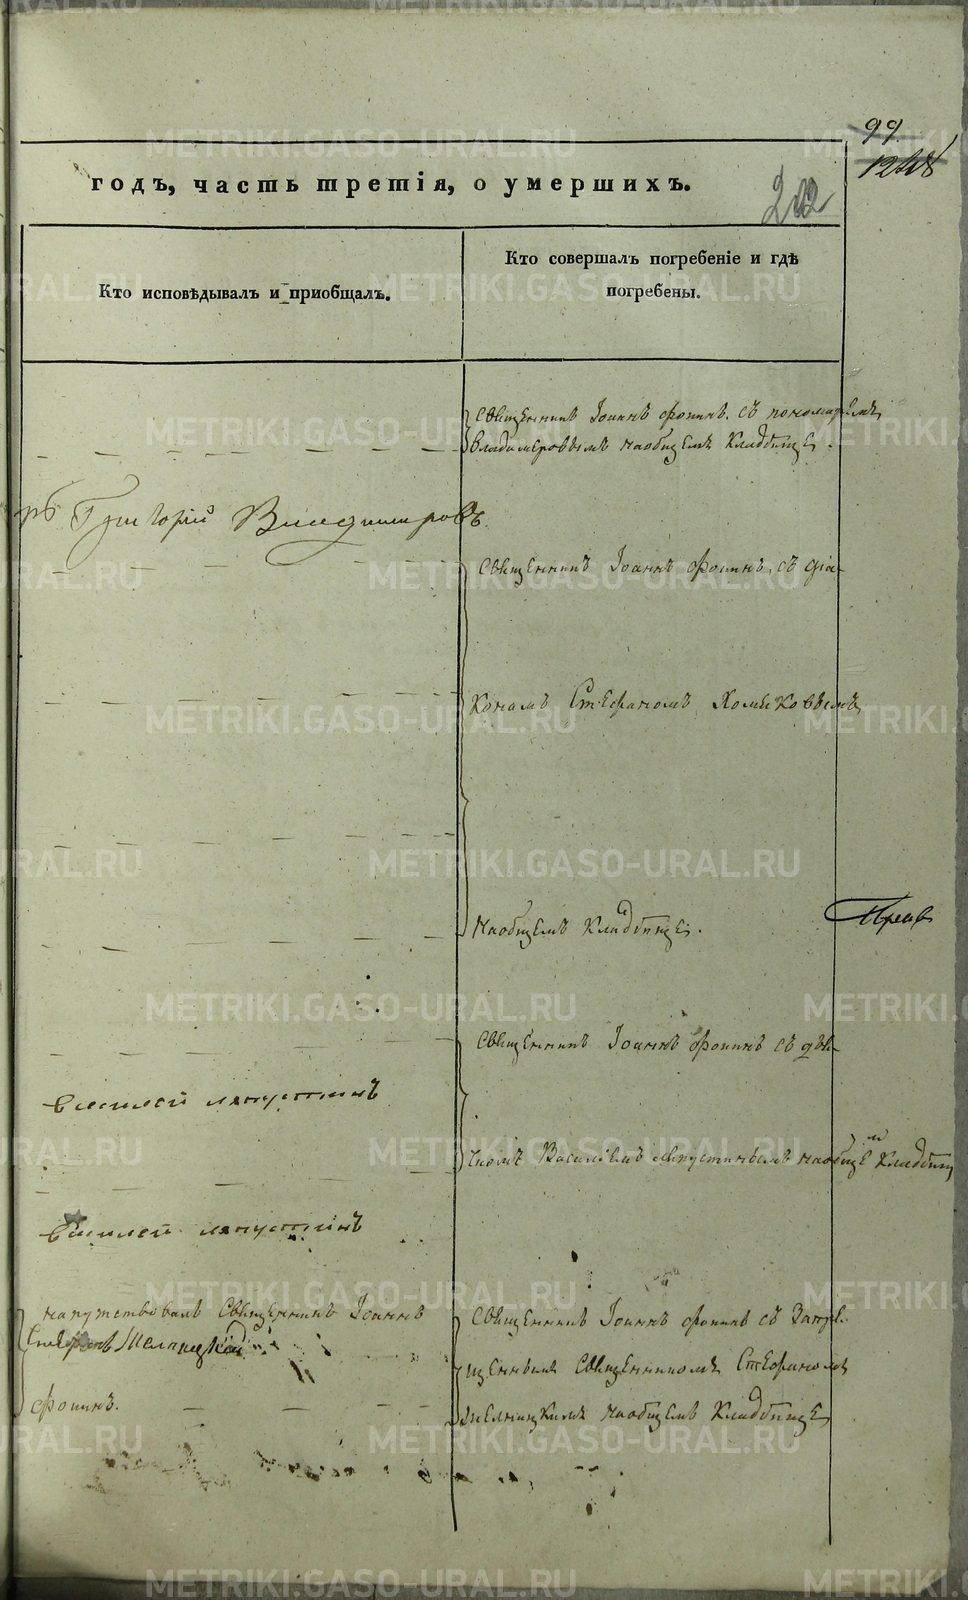 99
1248
годъ, часть третія, о умершихъ.
Кто исповѣдывалъ и приобщалъ.
Кто совершалъ погребеніе и гдѣ
погребены.
Священникъ Іоаннъ Фоминъ съ пономаремъ
Владимеровымъ на общемъ кладбище.
Григорий Владимировъ
Священникъ Іоаннъ Фоминъ съ діа-
кономъ Стефаномъ Хомяковымъ
на общемъ кладбище.
Священникъ Іоаннъ Фоминъ съ дья-
Василей Лапустинъ
Василіемъ Лапустинымъ на обще кладбищ
Василей Лапустинъ
напутствовалъ Священникъ Іоаннъ
Фоминъ.
Священникъ Іоаннъ Фоминъ съ Запре-
щеннымъ Священникомъ Стефаномъ
на общемъ кладбище
METRIKI.GASO-URAL.RU